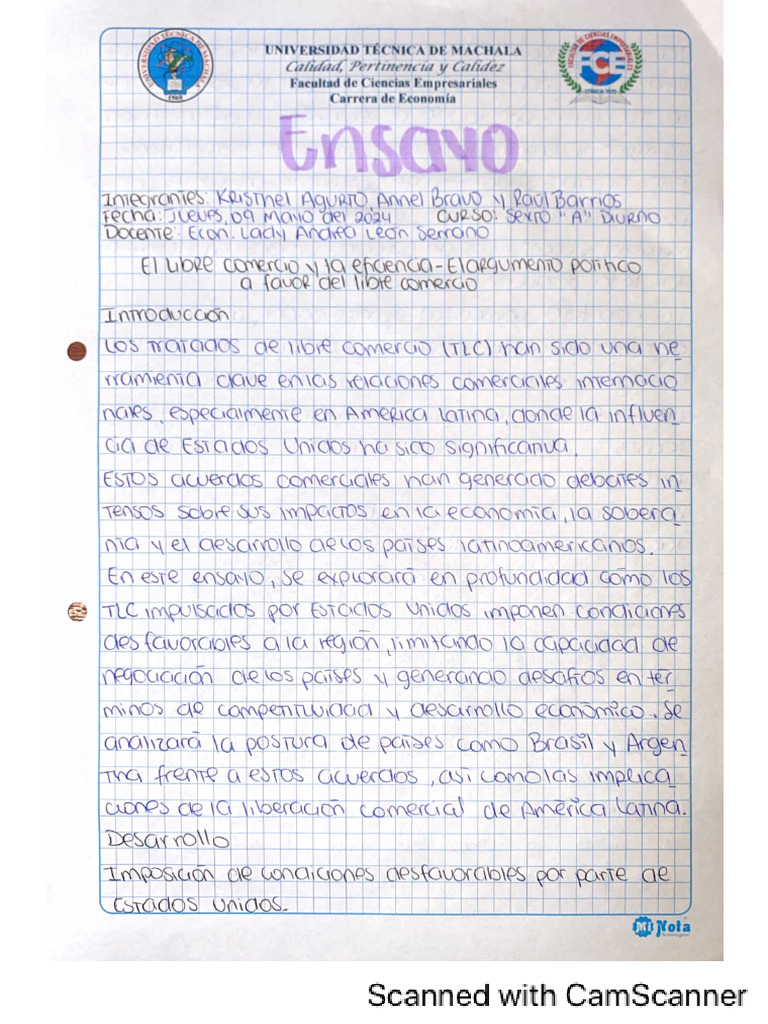 UNIVERSIDAD TÉCNICA DE MACHALA
Calidad, Pertinencia y Calidez
Facultad de Ciencias Empresariales
Carrera de Economía
Ensayo
Integrantes: Kristhel Agurto, Annel Bravo y Raúl Barrios
Fecha: Jueves, 09 Mayo del 2024 CURSO: Sexto "A" Diurno
Docente: Econ. Lady Andrea León Serrano
El libre comercio y la eficiencia - El argumento político
a favor del libre comercio
Introducción
Los tratados de libre comercio (TLC) han sido una he
rramienta clave en las relaciones comerciales internacio
nales, especialmente en América Latina, donde la influen
cia de Estados Unidos ha sido significativa.
Estos acuerdos comerciales han generado debates in
tensos sobre sus impactos en la economía, la sobera
nía y el desarrollo de los países latinoamericanos.
En este ensayo, se explorará en profundidad cómo los
TLC impulsados por Estados Unidos imponen condiciones
desfavorables a la región, limitando la capacidad de
negociación de los países y generando desafíos en tér
minos de competitividad y desarrollo económico. Se
analizará la postura de países como Brasil y Argen
tina frente a estos acuerdos, así como las implica
ciones de la liberación comercial de América Latina.
Desarrollo
Imposición de condiciones desfavorables por parte de
Estados Unidos.
Mi Nota
Scanned with CamScanner